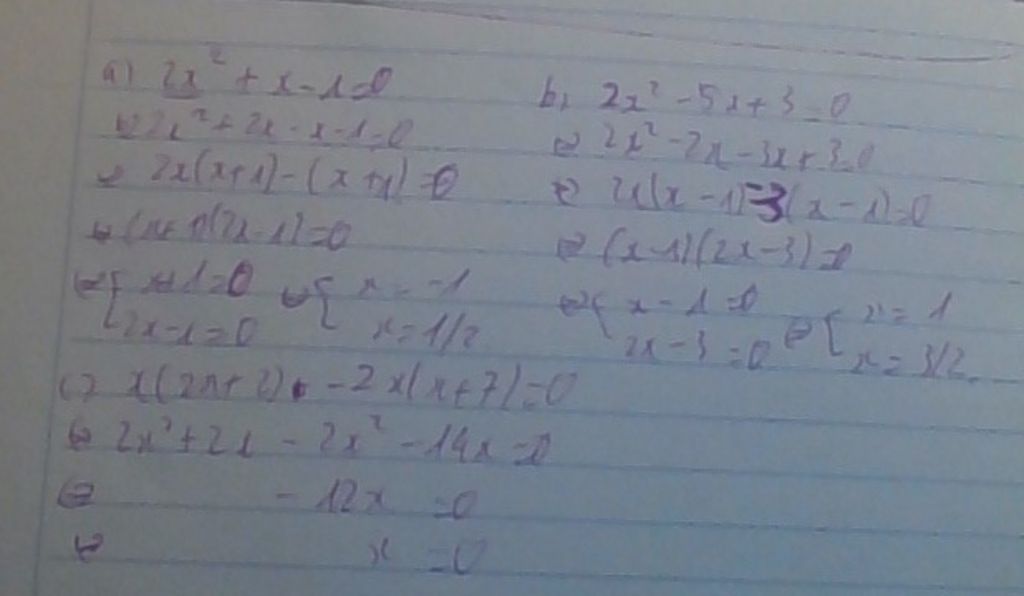 a) 2x² + x - 1 = 0
⇔ 2x² + 2x - x - 1 = 0
⇔ 2x(x+1) - (x+1) = 0
⇔ (x+1)(2x-1) = 0
⇔ { x+1 = 0 ⇔ { x = -1
2x-1 = 0 x = 1/2
b) 2x² - 5x + 3 = 0
⇔ 2x² - 2x - 3x + 3 = 0
⇔ 2x(x-1) - 3(x-1) = 0
⇔ (x-1)(2x-3) = 0
⇔ { x - 1 = 0 ⇔ { x = 1
2x - 3 = 0 x = 3/2
c) x(2x+2) - 2x(x+7) = 0
⇔ 2x² + 2x - 2x² - 14x = 0
⇔ - 12x = 0
⇔ x = 0